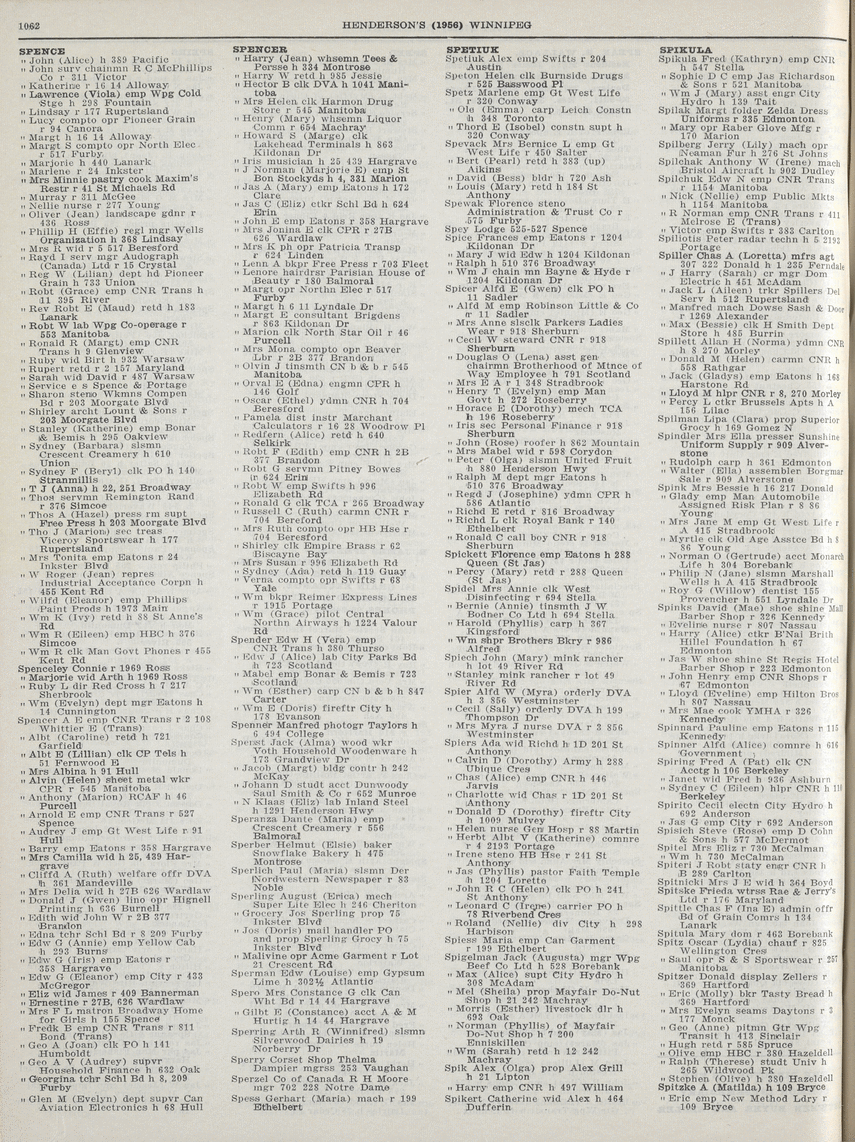 1062
HENDERSON'S (1956) WINNIPEG
SPENCE
" John (Alice) h 389 Pacific
" John surv chainmn R C McPhillips
Co r 311 Victor
" Katherine r 16 14 Alloway
" Lawrence (Viola) emp Wpg Cold
Stge h 298 Fountain
" Lindsay r 177 Rupertsland
" Lucy compto opr Pioneer Grain
r 94 Canora
" Margt h 16 14 Alloway
" Margt S compto opr North Elec
r 517 Furby
" Marjorie h 440 Lanark
" Marlene r 24 Inkster
" Mrs Minnie pastry cook Maxim's
Restr r 41 St Michaels Rd
" Murray r 311 McGee
" Nellie nurse r 277 Young
" Oliver (Jean) landscape gdnr r
436 Ross
" Phillip H (Effie) regl mgr Wells
Organization h 368 Lindsay
" Mrs R wid r 5 517 Beresford
" Rayd I serv mgr Audograph
(Canada) Ltd r 15 Crystal
" Reg W (Lilian) dept hd Pioneer
Grain h 733 Union
" Robt (Grace) emp CNR Trans h
11 395 River
" Rev Robt E (Maud) retd h 183
Lanark
" Robt W lab Wpg Co-operage r
553 Manitoba
" Ronald R (Margt) emp CNR
Trans h 9 Glenview
" Ruby wid Birt h 932 Warsaw
" Rupert retd r 2 157 Maryland
" Sarah wid David r 487 Warsaw
" Service e s Spence & Portage
" Sharon steno Wkmns Compen
Bd r 203 Moorgate Blvd
" Shirley archt Lount & Sons r
203 Moorgate Blvd
" Stanley (Katherine) emp Bonar
& Bemis h 295 Oakview
" Sydney (Barbara) slsmn
Crescent Creamery h 610
Union
" Sydney F (Beryl) clk PO h 140
Stranmillis
" T J (Anna) h 22, 251 Broadway
" Thos servmn Remington Rand
r 376 Simcoe
" Thos A (Hazel) press rm supt
Free Press h 203 Moorgate Blvd
" Tho J (Marion) sec treas
Viceroy Sportswear h 177
Rupertsland
" Mrs Tonita emp Eatons r 24
Inkster Blvd
" W Roger (Jean) repres
Industrial Acceptance Corpn h
455 Kent Rd
" Wilfd (Eleanor) emp Phillips
Paint Prods h 1973 Main
" Wm K (Ivy) retd h 88 St Anne's
Rd
" Wm R (Eileen) emp HBC h 376
Simcoe
" Wm R clk Man Govt Phones r 455
Kent Rd
Spenceley Connie r 1969 Ross
" Marjorie wid Arth h 1969 Ross
" Ruby L dir Red Cross h 7 217
Sherbrook
" Wm (Evelyn) dept mgr Eatons h
14 Cunnington
Spencer A E emp CNR Trans r 2 108
Whittier E (Trans)
" Albt (Caroline) retd h 721
Garfield
" Albt E (Lillian) clk CP Tels h
51 Fernwood E
" Mrs Albina h 91 Hull
" Alvin (Helen) sheet metal wkr
CPR r 545 Manitoba
" Anthony (Marion) RCAF h 46
Purcell
" Arnold E emp CNR Trans r 527
Spence
" Audrey J emp Gt West Life r 91
Hull
" Barry emp Eatons r 358 Hargrave
" Mrs Camilla wid h 25, 439 Har-
grave
" Cliffd A (Ruth) welfare offr DVA
h 361 Mandeville
" Mrs Delia wid h 27B 626 Wardlaw
" Donald J (Gwen) lino opr Hignell
Printing h 636 Burnell
" Edith wid John W r 2B 377
Brandon
" Edna tchr Schl Bd r 8 209 Furby
" Edw G (Annie) emp Yellow Cab
h 293 Burns
" Edw G (Iris) emp Eatons r
358 Hargrave
" Edw G (Eleanor) emp City r 433
McGregor
" Eliz wid James r 409 Bannerman
" Ernestine r 27B, 626 Wardlaw
" Mrs F L matron Broadway Home
for Girls h 155 Spence
" Fredk B emp CNR Trans r 811
Bond (Trans)
" Geo A (Joan) clk PO h 141
Humboldt
" Geo A V (Audrey) supvr
Household Finance h 632 Oak
" Georgina tchr Schl Bd h 8, 209
Furby
" Glen M (Evelyn) dept supvr Can
Aviation Electronics h 68 Hull
SPENCER
" Harry (Jean) whsemn Tees &
Persse h 334 Montrose
" Harry W retd h 985 Jessie
" Hector B clk DVA h 1041 Mani-
toba
" Mrs Helen clk Harmon Drug
Store r 545 Manitoba
" Henry (Mary) whsemn Liquor
Comm r 654 Machray
" Howard S (Marge) clk
Lakehead Terminals h 863
Kildonan Dr
" Iris musician h 25 439 Hargrave
" J Norman (Marjorie E) emp St
Bon Stockyds h 4, 331 Marion
" Jas A (Mary) emp Eatons h 172
Clare
" Jas C (Eliz) ctkr Schl Bd h 624
Erin
" John E emp Eatons r 358 Hargrave
" Mrs Jonina E clk CPR r 27B
626 Wardlaw
" Mrs K ph opr Patricia Transp
r 624 Linden
" Lenn A bkpr Free Press r 703 Fleet
" Lenore hairdrsr Parisian House of
Beauty r 180 Balmoral
" Margt opr Northn Elec r 517
Furby
" Margt h 6 11 Lyndale Dr
" Margt E consultant Brigdens
r 863 Kildonan Dr
" Marion clk North Star Oil r 46
Purcell
" Mrs Mona compto opr Beaver
Lbr r 2B 377 Brandon
" Olvin J tinsmth CN b & b r 545
Manitoba
" Orval E (Edna) engmn CPR h
146 Golf
" Oscar (Ethel) ydmn CNR h 704
Beresford
" Pamela dist instr Marchant
Calculators r 16 28 Woodrow Pl
" Redfern (Alice) retd h 640
Selkirk
" Robt F (Edith) emp CNR h 2B
377 Brandon
" Robt G servmn Pitney Bowes
r 624 Erin
" Robt W emp Swifts h 996
Elizabeth Rd
" Ronald G clk TCA r 265 Broadway
" Russell C (Ruth) carmn CNR r
704 Bereford
" Mrs Ruth compto opr HB Hse r
704 Beresford
" Shirley clk Empire Brass r 62
Biscayne Bay
" Mrs Susan r 996 Elizabeth Rd
" Sydney (Ada) retd h 119 Guay
" Verna compto opr Swifts r 68
Yale
" Wm bkpr Reimer Express Lines
r 1915 Portage
" Wm (Grace) pilot Central
Northn Airways h 1224 Valour
Rd
Spender Edw H (Vera) emp
CNR Trans h 380 Thurso
" Edw J (Alice) lab City Parks Bd
h 723 Scotland
" Mabel emp Bonar & Bemis r 723
Scotland
" Wm (Esther) carp CN b & b h 847
Carter
" Wm E (Doris) fireftr City h
178 Evanson
Spenner Manfred photogr Taylors h
6 494 College
Spenst Jack (Alma) wood wkr
Voth Household Woodenware h
173 Grandview Dr
" Jacob (Margt) bldg contr h 242
McKay
" Johann D studt acct Dunwoody
Saul Smith & Co r 652 Munroe
" N Klaas (Eliz) lab Inland Steel
h 1291 Henderson Hwy
Speranza Dante (Maria) emp
Crescent Creamery r 556
Balmoral
Sperber Helmut (Elsie) baker
Snowflake Bakery h 475
Montrose
Sperlich Paul (Maria) slsmn Der
Nordwestern Newspaper r 83
Noble
Sperling August (Erica) mech
Super Lite Elec h 246 Cheriton
" Grocery Jos Sperling prop 75
Inkster Blvd
" Jos (Doris) mail handler PO
and prop Sperling Grocy h 75
Inkster Blvd
" Malivine opr Acme Garment r Lot
21 Crescent Rd
Sperman Edw (Louise) emp Gypsum
Lime h 302½ Atlantic
Spero Mrs Constance G clk Can
Wht Bd r 14 44 Hargrave
" Gilbt E (Constance) acct A & M
Hurtig h 14 44 Hargrave
Sperring Arth R (Winnifred) slsmn
Silverwood Dairies h 19
Norberry Dr
Sperry Corset Shop Thelma
Dampier mgrss 253 Vaughan
Sperzel Co of Canada R H Moore
mgr 702 228 Notre Dame
Spess Gerhart (Maria) mach r 199
Ethelbert
SPETIUK
Spetiuk Alex emp Swifts r 204
Austin
Speton Helen clk Burnside Drugs
r 525 Basswood Pl
Spetz Marlene emp Gt West Life
r 320 Conway
" Ole (Emma) carp Leich Constn
h 348 Toronto
" Thord E (Isobel) constn supt h
320 Conway
Spevack Mrs Bernice L emp Gt
West Life r 450 Salter
" Bert (Pearl) retd h 383 (up)
Aikins
" David (Bess) bldr h 720 Ash
" Louis (Mary) retd h 184 St
Anthony
Spewak Florence steno
Administration & Trust Co r
575 Furby
Spey Lodge 525-527 Spence
Spice Frances emp Eatons r 1204
Kildonan Dr
" Mary J wid Edw h 1204 Kildonan
" Ralph h 510 376 Broadway
" Wm J chain mn Bayne & Hyde r
1204 Kildonan Dr
Spicer Alfd E (Gwen) clk PO h
11 Sadler
" Alfd M emp Robinson Little & Co
r 11 Sadler
" Mrs Anne slsclk Parkers Ladies
Wear r 918 Sherburn
" Cecil W steward CNR r 918
Sherburn
" Douglas O (Lena) asst gen
chairmn Brotherhood of Mtnce of
Way Employee h 791 Scotland
" Mrs E A r 1 348 Stradbrook
" Henry T (Evelyn) emp Man
Govt h 272 Roseberry
" Horace E (Dorothy) mech TCA
h 196 Roseberry
" Iris sec Personal Finance r 918
Sherburn
" John (Rose) roofer h 862 Mountain
" Mrs Mabel wid r 598 Corydon
" Peter (Olga) slsmn United Fruit
h 880 Henderson Hwy
" Ralph M dept mgr Eatons h
510 376 Broadway
" Regd J (Josephine) ydmn CPR h
586 Atlantic
" Richd E retd r 816 Broadway
" Richd L clk Royal Bank r 140
Ethelbert
" Ronald C call boy CNR r 918
Sherburn
Spickett Florence emp Eatons h 288
Queen (St Jas)
" Percy (Mary) retd r 288 Queen
(St Jas)
Spidel Mrs Annie clk West
Disinfecting r 694 Stella
" Bernie (Annie) tinsmth J W
Bodner Co Ltd h 694 Stella
" Harold (Phyllis) carp h 367
Kingsford
" Wm shpr Brothers Bkry r 986
Alfred
Spiech John (Mary) mink rancher
h lot 49 River Rd
" Stanley mink rancher r lot 49
River Rd
Spier Alfd W (Myra) orderly DVA
h 3 856 Westminster
" Cecil (Sally) orderly DVA h 199
Thompson Dr
" Mrs Myra J nurse DVA r 3 856
Westminster
Spiers Ada wid Richd h 1D 201 St
Anthony
" Calvin D (Dorothy) Army h 288
Ubique Cres
" Chas (Alice) emp CNR h 446
Jarvis
" Charlotte wid Chas r 1D 201 St
Anthony
" Donald D (Dorothy) fireftr City
h 1009 Mulvey
" Helen nurse Gen Hosp r 88 Martin
" Herbt Albt V (Katherine) comnre
r 4 2193 Portage
" Irene steno HB Hse r 241 St
Anthony
" Jas (Phyllis) pastor Faith Temple
h 1204 Loretto
" John R C (Helen) clk PO h 241
St Anthony
" Leonard C (Irene) carrier PO h
78 Riverbend Cres
" Roland (Nellie) div City h 298
Harbison
Spiess Maria emp Can Garment
r 199 Ethelbert
Spigelman Jack (Augusta) mgr Wpg
Beef Co Ltd h 528 Borebank
" Max (Alice) supt City Hydro h
308 McAdam
" Mel (Sheila) prop Mayfair Do-Nut
Shop h 21 242 Machray
" Morris (Esther) livestock dlr h
693 Oak
" Norman (Phyllis) of Mayfair
Do-Nut Shop h 7 200
Enniskillen
" Wm (Sarah) retd h 12 242
Machray
Spik Alex (Olga) prop Alex Grill
h 21 Lipton
" Harry emp CNR h 497 William
Spikert Catherine wid Alex h 464
Dufferin
SPIKULA
Spikula Fred (Kathryn) emp CNR
h 547 Stella
" Sophie D C emp Jas Richardson
& Sons r 521 Manitoba
" Wm J (Mary) asst engr City
Hydro h 139 Tait
Spilak Margt folder Zelda Dress
Uniforms r 335 Edmonton
" Mary opr Raber Glove Mfg r
170 Marion
Spilberg Jerry (Lily) mach opr
Neaman Fur h 276 St Johns
Spilchak Anthony W (Irene) mach
Bristol Aircraft h 902 Dudley
Spilchuk Edw N emp CNR Trans
r 1154 Manitoba
" Nick (Nellie) emp Public Mkts
h 1154 Manitoba
" R Norman emp CNR Trans r 411
Melrose E (Trans)
" Victor emp Swifts r 383 Carlton
Spiliotis Peter radar techn h 5 2193
Portage
Spiller Chas A (Loretta) mfrs agt
307 322 Donald h 1 235 Ferndale
" J Harry (Sarah) cr mgr Dom
Electric h 451 McAdam
" Jack L (Aileen) trkr Spillers Del
Serv h 512 Rupertsland
" Manfred mach Dowse Sash & Door
r 1269 Alexander
" Max (Bessie) clk H Smith Dept
Store h 485 Burrin
Spillett Allan H (Norma) ydmn CNR
h 8 270 Morley
" Donald M (Helen) carmn CNR h
558 Rathgar
" Jack (Gladys) emp Eatons h 168
Harstone Rd
" Lloyd M hlpr CNR r 8, 270 Morley
" Percy L ctkr Brussels Apts h A
156 Lilac
Spilman Lipa (Clara) prop Superior
Grocy h 169 Gomez N
Spindler Mrs Ella presser Sunshine
Uniform Supply r 909 Alver-
stone
" Rudolph carp h 361 Edmonton
" Walter (Ella) assembler Borgmar
Sale r 909 Alverstone
Spink Mrs Bessie h 16 217 Donald
" Glady emp Man Automobile
Assigned Risk Plan r 8 86
Young
" Mrs Jane M emp Gt West Life r
A 415 Stradbrook
" Myrtle clk Old Age Asstce Bd h 8
86 Young
" Norman O (Gertrude) acct Monarch
Life h 304 Borebank
" Philip N (Jane) slsmn Marshall
Wells h A 415 Stradbrook
" Roy G (Willow) dentist 155
Provencher h 551 Lyndale Dr
Spinks David (Mae) shoe shine Mall
Barber Shop r 326 Kennedy
" Eveline nurse r 807 Nassau
" Harry (Alice) ctkr B'Nai Brith
Hillel Foundation h 67
Edmonton
" Jas W shoe shine St Regis Hotel
Barber Shop r 223 Edmonton
" John Henry emp CNR Shops r
67 Edmonton
" Lloyd (Eveline) emp Hilton Bros
h 807 Nassau
" Mrs Mae cook YMHA r 326
Kennedy
Spinnard Pauline emp Eatons r 115
Kennedy
Spinner Alfd (Alice) comnre h 616
Government
Spiring Fred A (Pat) clk CN
Acctg h 106 Berkeley
" Janet wid Fred h 936 Ashburn
" Sydney C (Eileen) hlpr CNR h 11
Berkeley
Spirito Cecil electn City Hydro h
692 Anderson
" Jas G emp City r 692 Anderson
Spisich Steve (Rose) emp D Cohn
& Sons h 577 McDermot
Spitel Mrs Eliz r 730 McCalman
" Wm h 730 McCalman
Spiteri J Robt staty engr CNR h
B 289 Carlton
Spitnicki Mrs J E wid h 364 Boyd
Spitske Frieda wtrss Rae & Jerry's
Ltd r 176 Maryland
Spittle Chas F (Ena E) admin offr
Bd of Grain Comrs h 134
Lanark
Spitula Mary dom r 463 Borebank
Spitz Oscar (Lydia) chauf r 825
Wellington Cres
" Saul opr S & S Sportswear r 257
Manitoba
Spitzer Donald display Zellers r
369 Hartford
" Eric (Molly) bkr Tasty Bread h
369 Hartford
" Mrs Evelyn seams Daytons r 3
177 Monck
" Geo (Anne) pitmn Gtr Wpg
Transit h 413 Sinclair
" Hugh retd r 585 Spruce
" Olive emp HBC r 380 Hazeldell
" Ralph (Therese) studt Univ h
265 Wildwood Pk
" Stephen (Olive) h 380 Hazeldell
Spitzke A (Matilda) h 109 Bryce
" Eric emp New Method Ldry r
109 Bryce